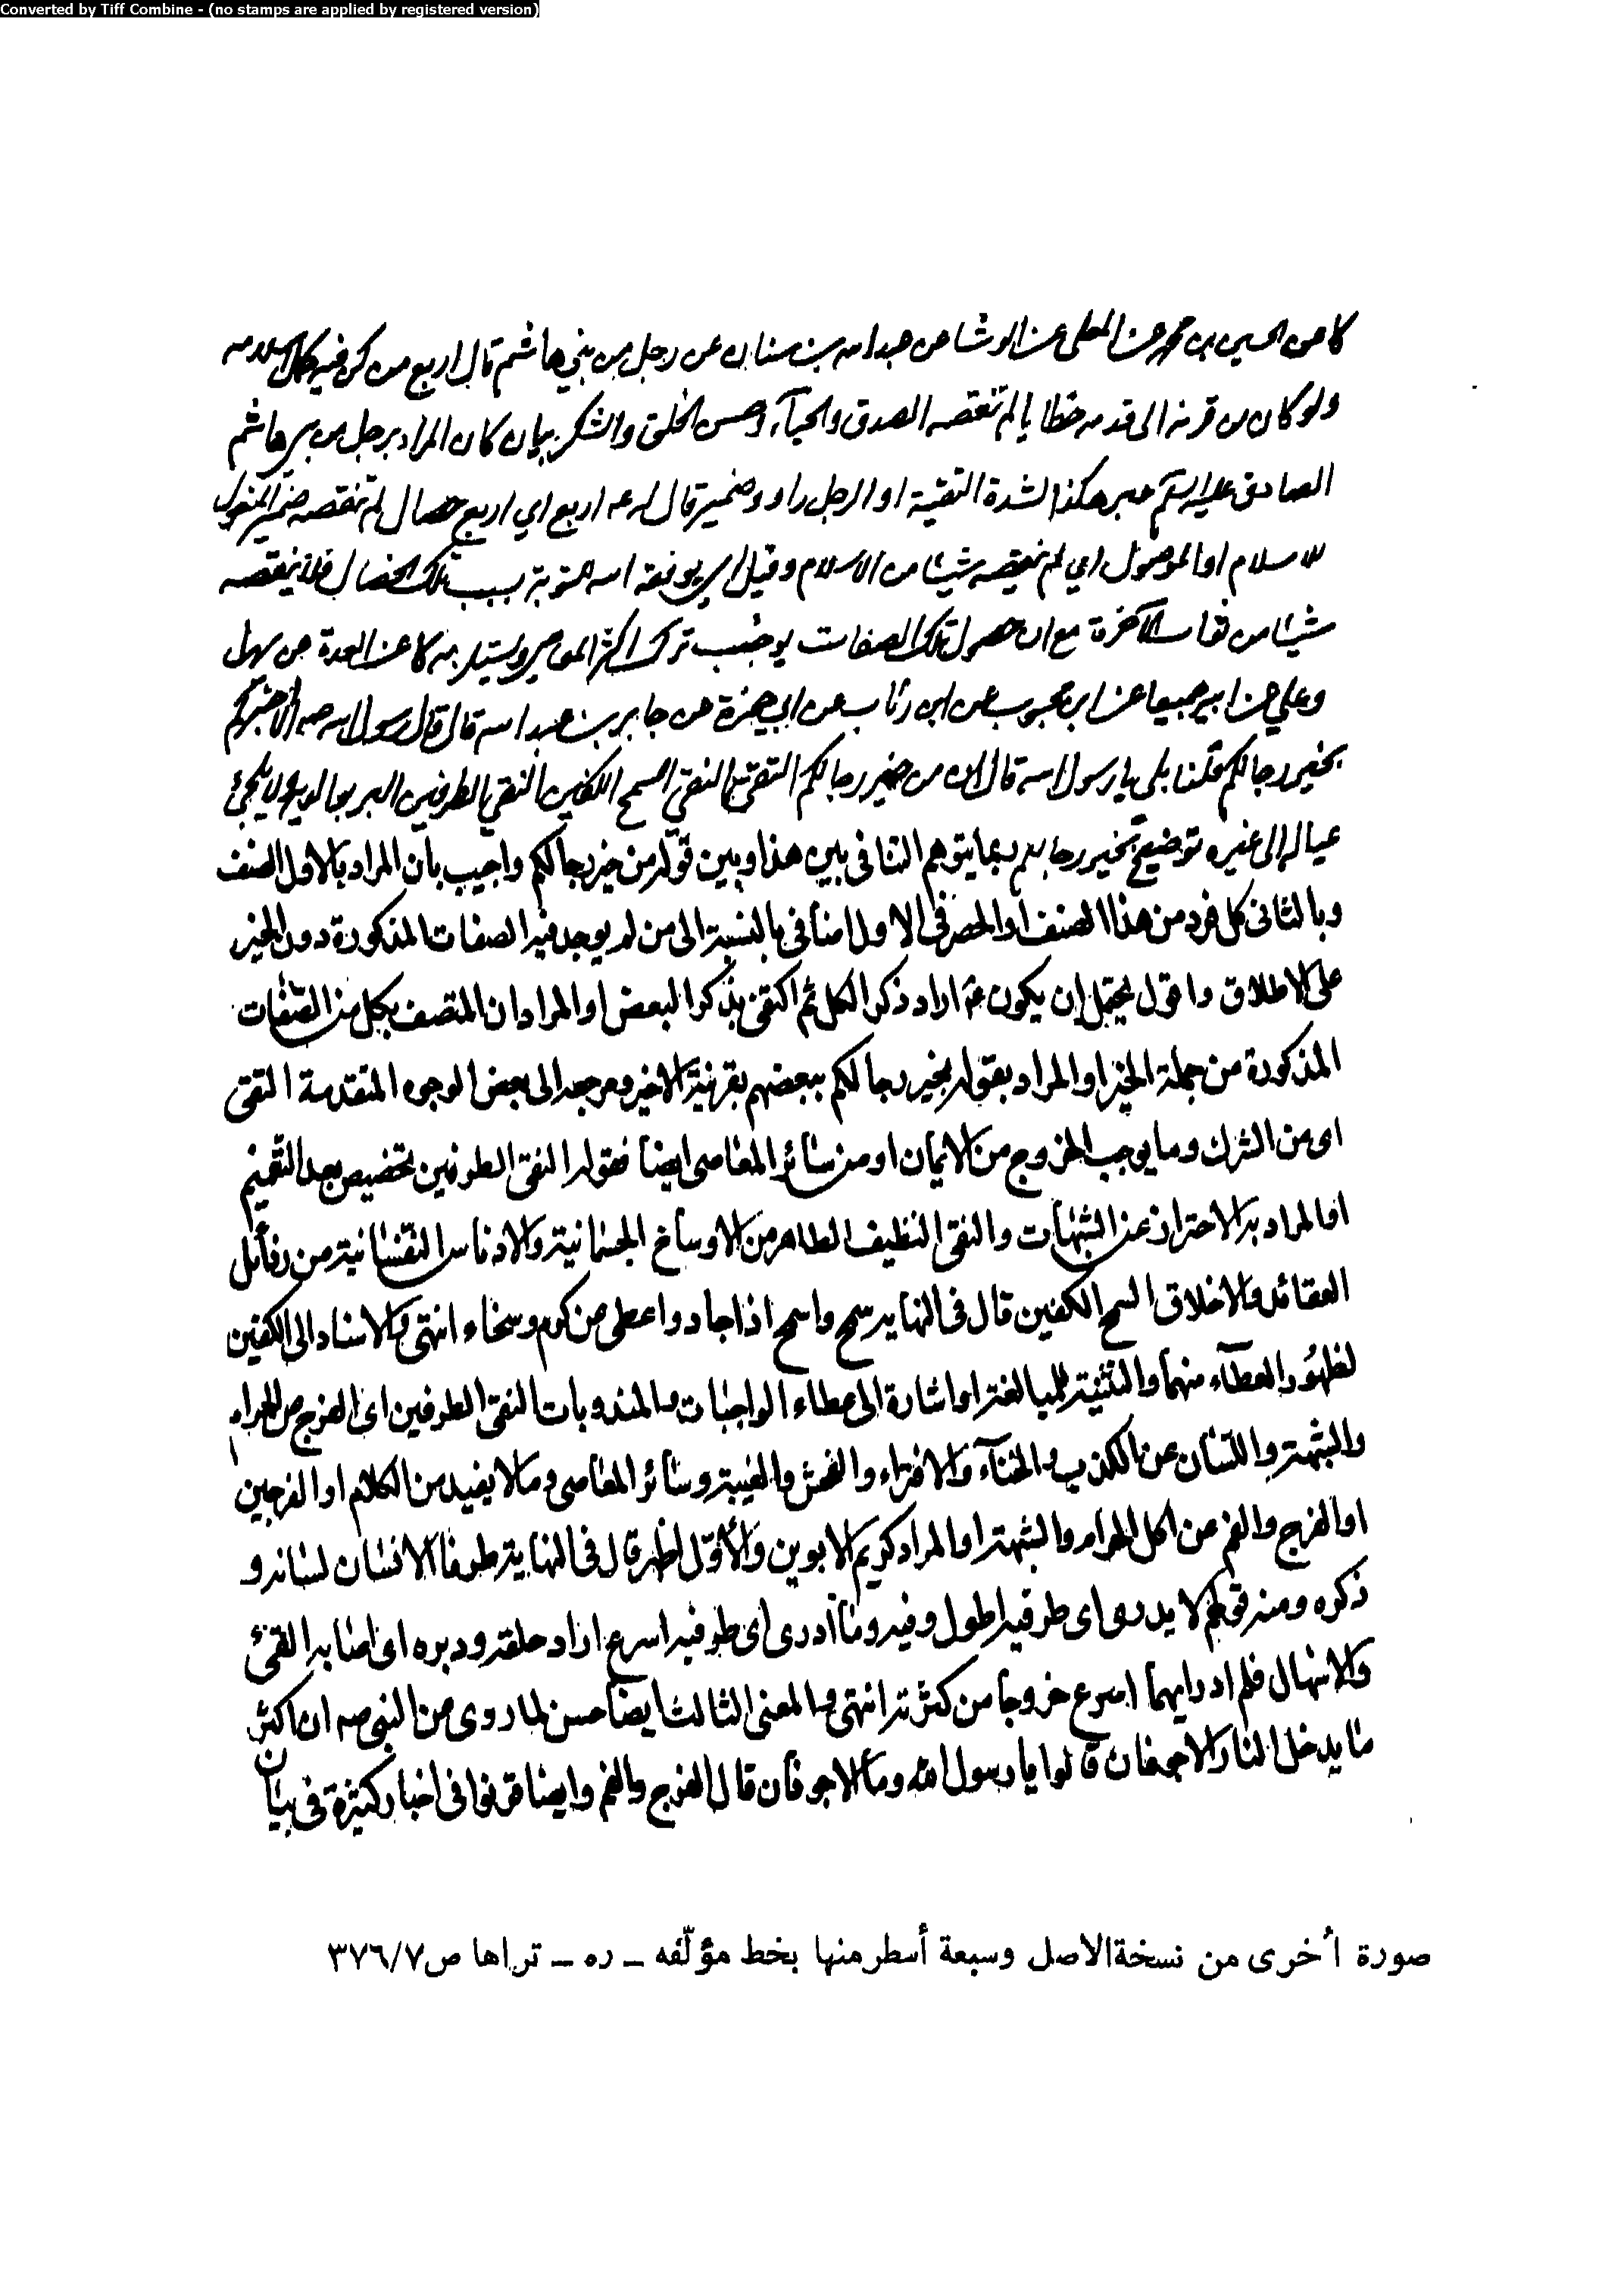 Converted by Tiff Combine - (no stamps are applied by registered version)
كا عن الحسين بن محمد عن المعلى عن الوشا عن عبد الله بن سنان عن رجل من بني هاشم قال اربع من كن فيه كمل اسلامه
ولو كان من قرنه الى قدمه خطايا لم تنقصه الصدق والحيآء وحسن الخلق والشكر بيان كان المراد برجل من بني هاشم
الصادق عليه السلم عبر هكذا لشدة التقية او الرجل راو وضمير قال له ع اربع اي اربع خصال لم تنقصه ضمير المفعول
للاسلام او الموصول اي لم ينقصه شيئا من الاسلام وقيل اي يوفقه الله للتوبة بسبب تلك الخصال فلا ينقصه
شيئا من ثواب الآخرة مع ان حصول تلك الصفات يوجب ترك اكثر المعاصي ويستلزمه كا عن العدة عن سهل
وعلي عن ابيه جميعا عن ابن محبوب عن ابن رئاب عن ابي حمزة عن جابر بن عبد الله قال قال رسول الله صه الا اخبركم
بخير رجالكم قلنا بلى يا رسول الله قال ان من خير رجالكم التقي النقي السمح الكفين النقي الطرفين البر بوالديه ولا يلجئ
عياله الى غيره توضيح بخير رجالكم ربما يتوهم التنافى بين هذا وبين قوله من خير رجالكم واجيب بأن المراد بالاول الصنف
وبالثانى كل فرد من هذا الصنف او الحصر فى الاول اضافى بالنسبة الى من لم يوجد فيه الصفات المذكورة دون الخير
على الاطلاق واقول يحتمل ان يكون ع اراد ذكر الكل ثم اكتفى بذكر البعض او المراد ان المتصف بكل من الصفات
المذكورة من جملة الخير او المراد بقوله بخير رجالكم ببعضهم بقرينة الاخير ومرجعه الى بعض الوجوه المتقدمة التقى
اى من الشرك وما يوجب الخروج من الايمان او من سائر المعاصى ايضا فقوله النقى الطرفين تخصيص بعد التعميم
او المراد به الاحتراز عن الشبهات والنقى النظيف الطاهر من الاوساخ الجسمانية والادناس النفسانية من رذائل
العقائد والاخلاق السمح الكفين قال فى النهاية سمح واسمح اذا جاد واعطى عن كرم وسخاء انتهى والاسناد الى الكفين
لظهور العطآء منهما والتثنية للمبالغة او اشارة الى عطاء الواجبات والمندوبات النقى الطرفين اى الفرج عن الحرام
والشبهة واللسان عن الكذب والخنآء والافتراء والفحش والغيبة وسائر المعاصى وما لا يفيد من الكلام او الفرجين
او الفرج والفم عن اكل الحرام والشبهة او المراد كريم الابوين والأول اظهر قال فى النهاية طرفا الانسان لسانه و
ذكره ومنه قولهم لا يدرى اى طرفيه اطول وفيه وما أدرى اى طرفيه اسرع اراد حلقه ودبره اى اصابه القئ
والاسهال فلم ادر ايهما اسرع خروجا من كثرته انتهى والمعنى الثالث ايضا حسن لما روى عن النبى صه ان اكثر
ما يدخل النار الاجوفان قالوا يا رسول الله وما الاجوفان قال الفرج والفم وايضا قرنوا فى اخبار كثيرة فى بيان
صورة أُخرى من نسخة الاصل وسبعة أسطر منها بخط مؤلّفه ـ ره ـ تراها ص٣٧٦/٧